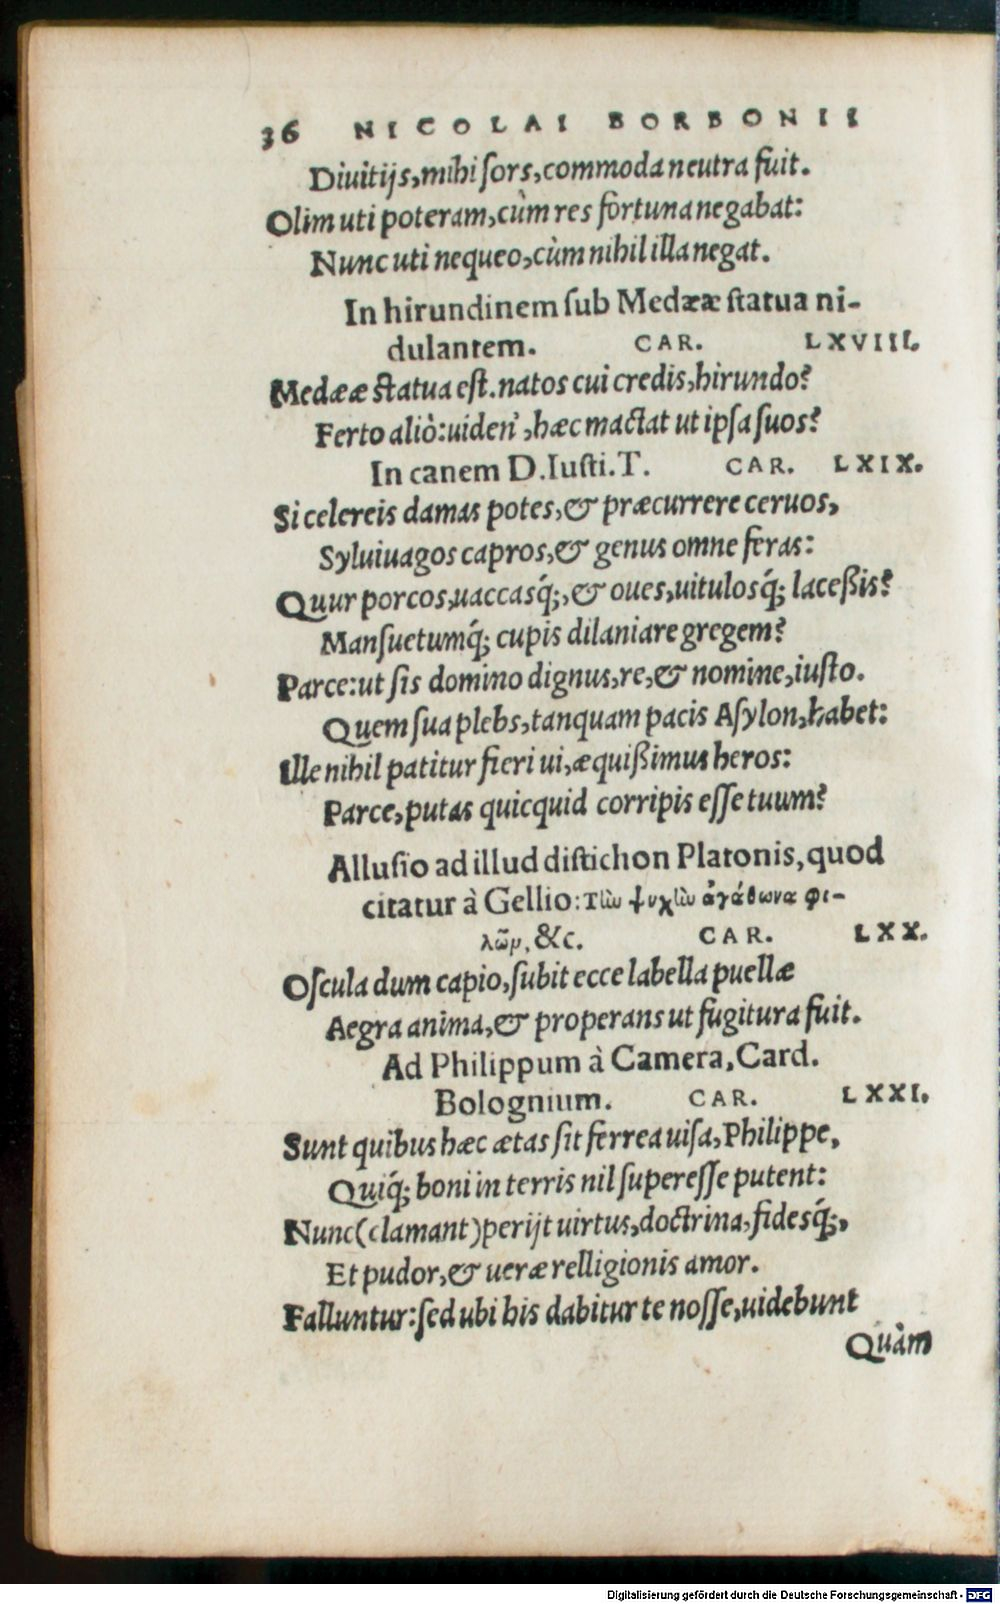 36 NICOLAI BORBONII
Diuitijs, mihi sors, commoda neutra fuit.
Olim uti poteram, cùm res fortuna negabat:
Nunc uti nequeo, cùm nihil illa negat.
In hirundinem sub Medææ statua ni-
dulantem. CAR. LXVIII.
Medææ statua est. natos cui credis, hirundo?
Ferto aliò: uiden', hæc mactat ut ipsa suos?
In canem D. Iusti. T. CAR. LXIX.
Si celereis damas potes, & præcurrere ceruos,
Syluiuagos capros, & genus omne feras:
Quur porcos, uaccasq́;, & oues, uitulosq́; laceßis?
Mansuetumq́; cupis dilaniare gregem?
Parce: ut sis domino dignus, re, & nomine, iusto.
Quem sua plebs, tanquam pacis Asylon, habet:
Ille nihil patitur fieri ui, æquißimus heros:
Parce, putas quicquid corripis esse tuum?
Allusio ad illud distichon Platonis, quod
citatur à Gellio: τὴν ψυχὴν ἀγάθωνα φι-
λῶν, &c. CAR. LXX.
Oscula dum capio, subit ecce labella puellæ
Aegra anima, & properans ut fugitura fuit.
Ad Philippum à Camera, Card.
Bolognium. CAR. LXXI.
Sunt quibus hæc ætas sit ferrea uisa, Philippe,
Quiq́; boni in terris nil superesse putent:
Nunc (clamant) perijt uirtus, doctrina, fidesq́;,
Et pudor, & ueræ relligionis amor.
Falluntur: sed ubi his dabitur te nosse, uidebunt
Quàm
Digitalisierung gefördert durch die Deutsche Forschungsgemeinschaft - DFG